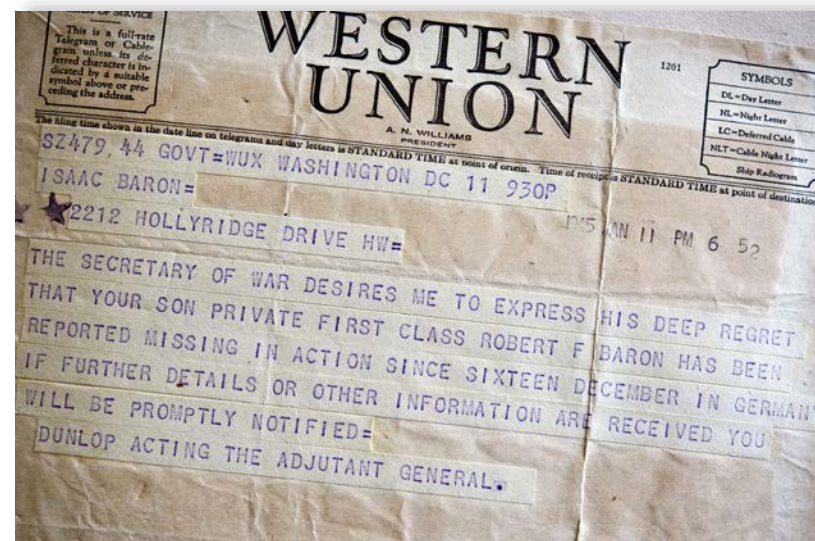 OF SERVICE
This is a full-rate
Telegram or Cable-
gram unless its de-
ferred character is in-
dicated by a suitable
symbol above or pre-
ceding the address.
WESTERN
UNION
1201
A. N. WILLIAMS
PRESIDENT
SYMBOLS
DL=Day Letter
NL=Night Letter
LC=Deferred Cable
NLT=Cable Night Letter
Ship Radiogram
The filing time shown in the date line on telegrams and day letters is STANDARD TIME at point of origin. Time of receipt is STANDARD TIME at point of destination
SZ479. 44 GOVT=WUX WASHINGTON DC 11 930P
ISAAC BARON=
2212 HOLLYRIDGE DRIVE HW=
1945 JAN 11 PM 6 52
THE SECRETARY OF WAR DESIRES ME TO EXPRESS HIS DEEP REGRET
THAT YOUR SON PRIVATE FIRST CLASS ROBERT F BARON HAS BEEN
REPORTED MISSING IN ACTION SINCE SIXTEEN DECEMBER IN GERMANY
IF FURTHER DETAILS OR OTHER INFORMATION ARE RECEIVED YOU
WILL BE PROMPTLY NOTIFIED=
DUNLOP ACTING THE ADJUTANT GENERAL.